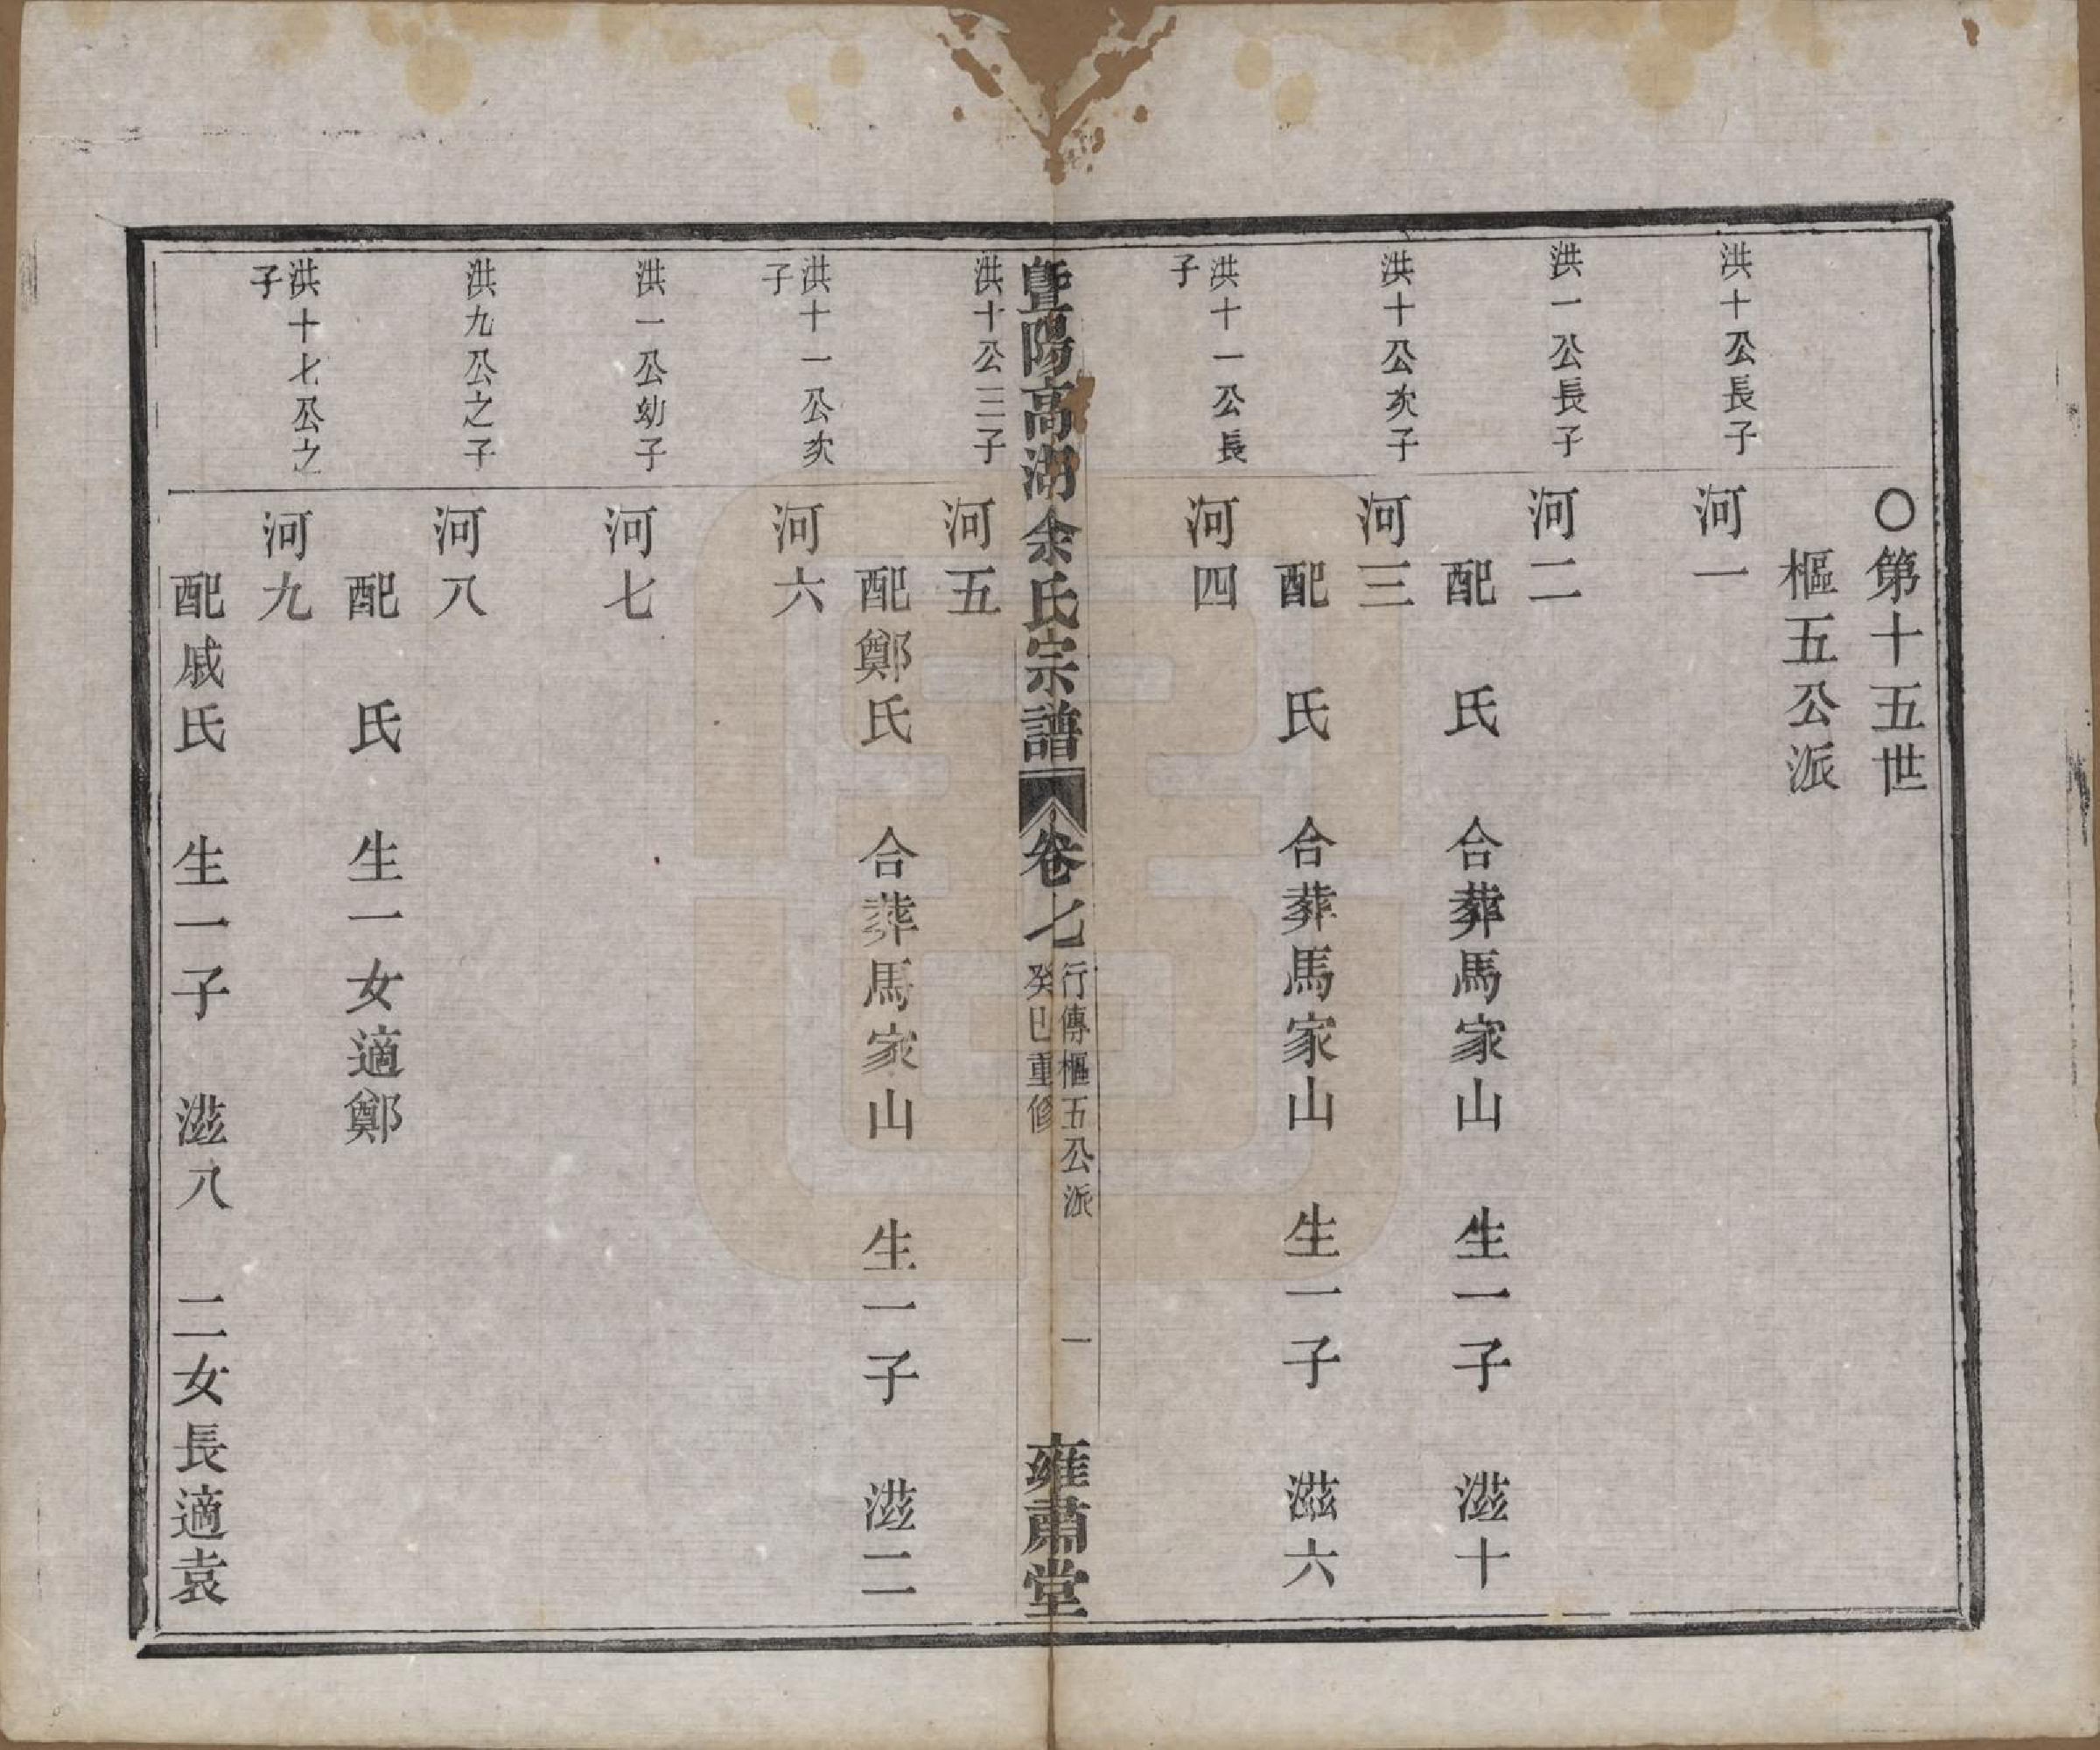 〇第十五世
樞五公派
洪十公長子
河一
洪一公長子
河二
配　氏　合葬馬家山　生一子　滋十
洪十公次子
河三
配　氏　合葬馬家山　生一子　滋六
洪十一公長
子
河四
暨陽高湖余氏宗譜　卷七　行傳樞五公派　一　雍肅堂
癸巳重修
洪十公三子
河五
配鄭氏　合葬馬家山　生一子　滋二
洪十一公次
子
河六
洪一公幼子
河七
洪九公之子
河八
配　氏　生一女適鄭
洪十七公之
子
河九
配戚氏　生一子　滋八　二女長適袁